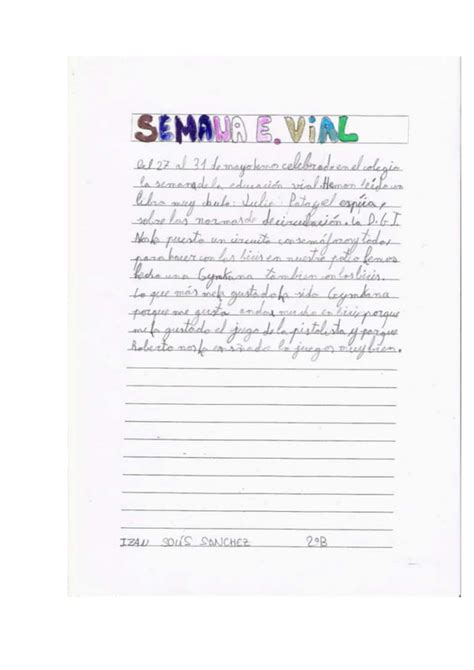 SEMANA E. ViAL
Del 27 al 31 de mayo hemos celebrado en el colegio
la semana de la educación vial. Hemon leido un
libro muy chulo: Julia Pata y el espía, y
sobre las normas de circulación. La D.G.T
Nos ha puesto un circuito con semáforos y todo,
para hacer con las bicis en nuestro patio hemos
hecho una Gymkana tambien con las bicis.
Lo que más me ha gustado ha sido Gymkana
porque me gusta andar mucho en bici y porque
me ha gustado el juego de la pistolista y porque
Roberto nos ha los juegos muy bien.
IZAN SOLÍS SANCHEZ 2ºB